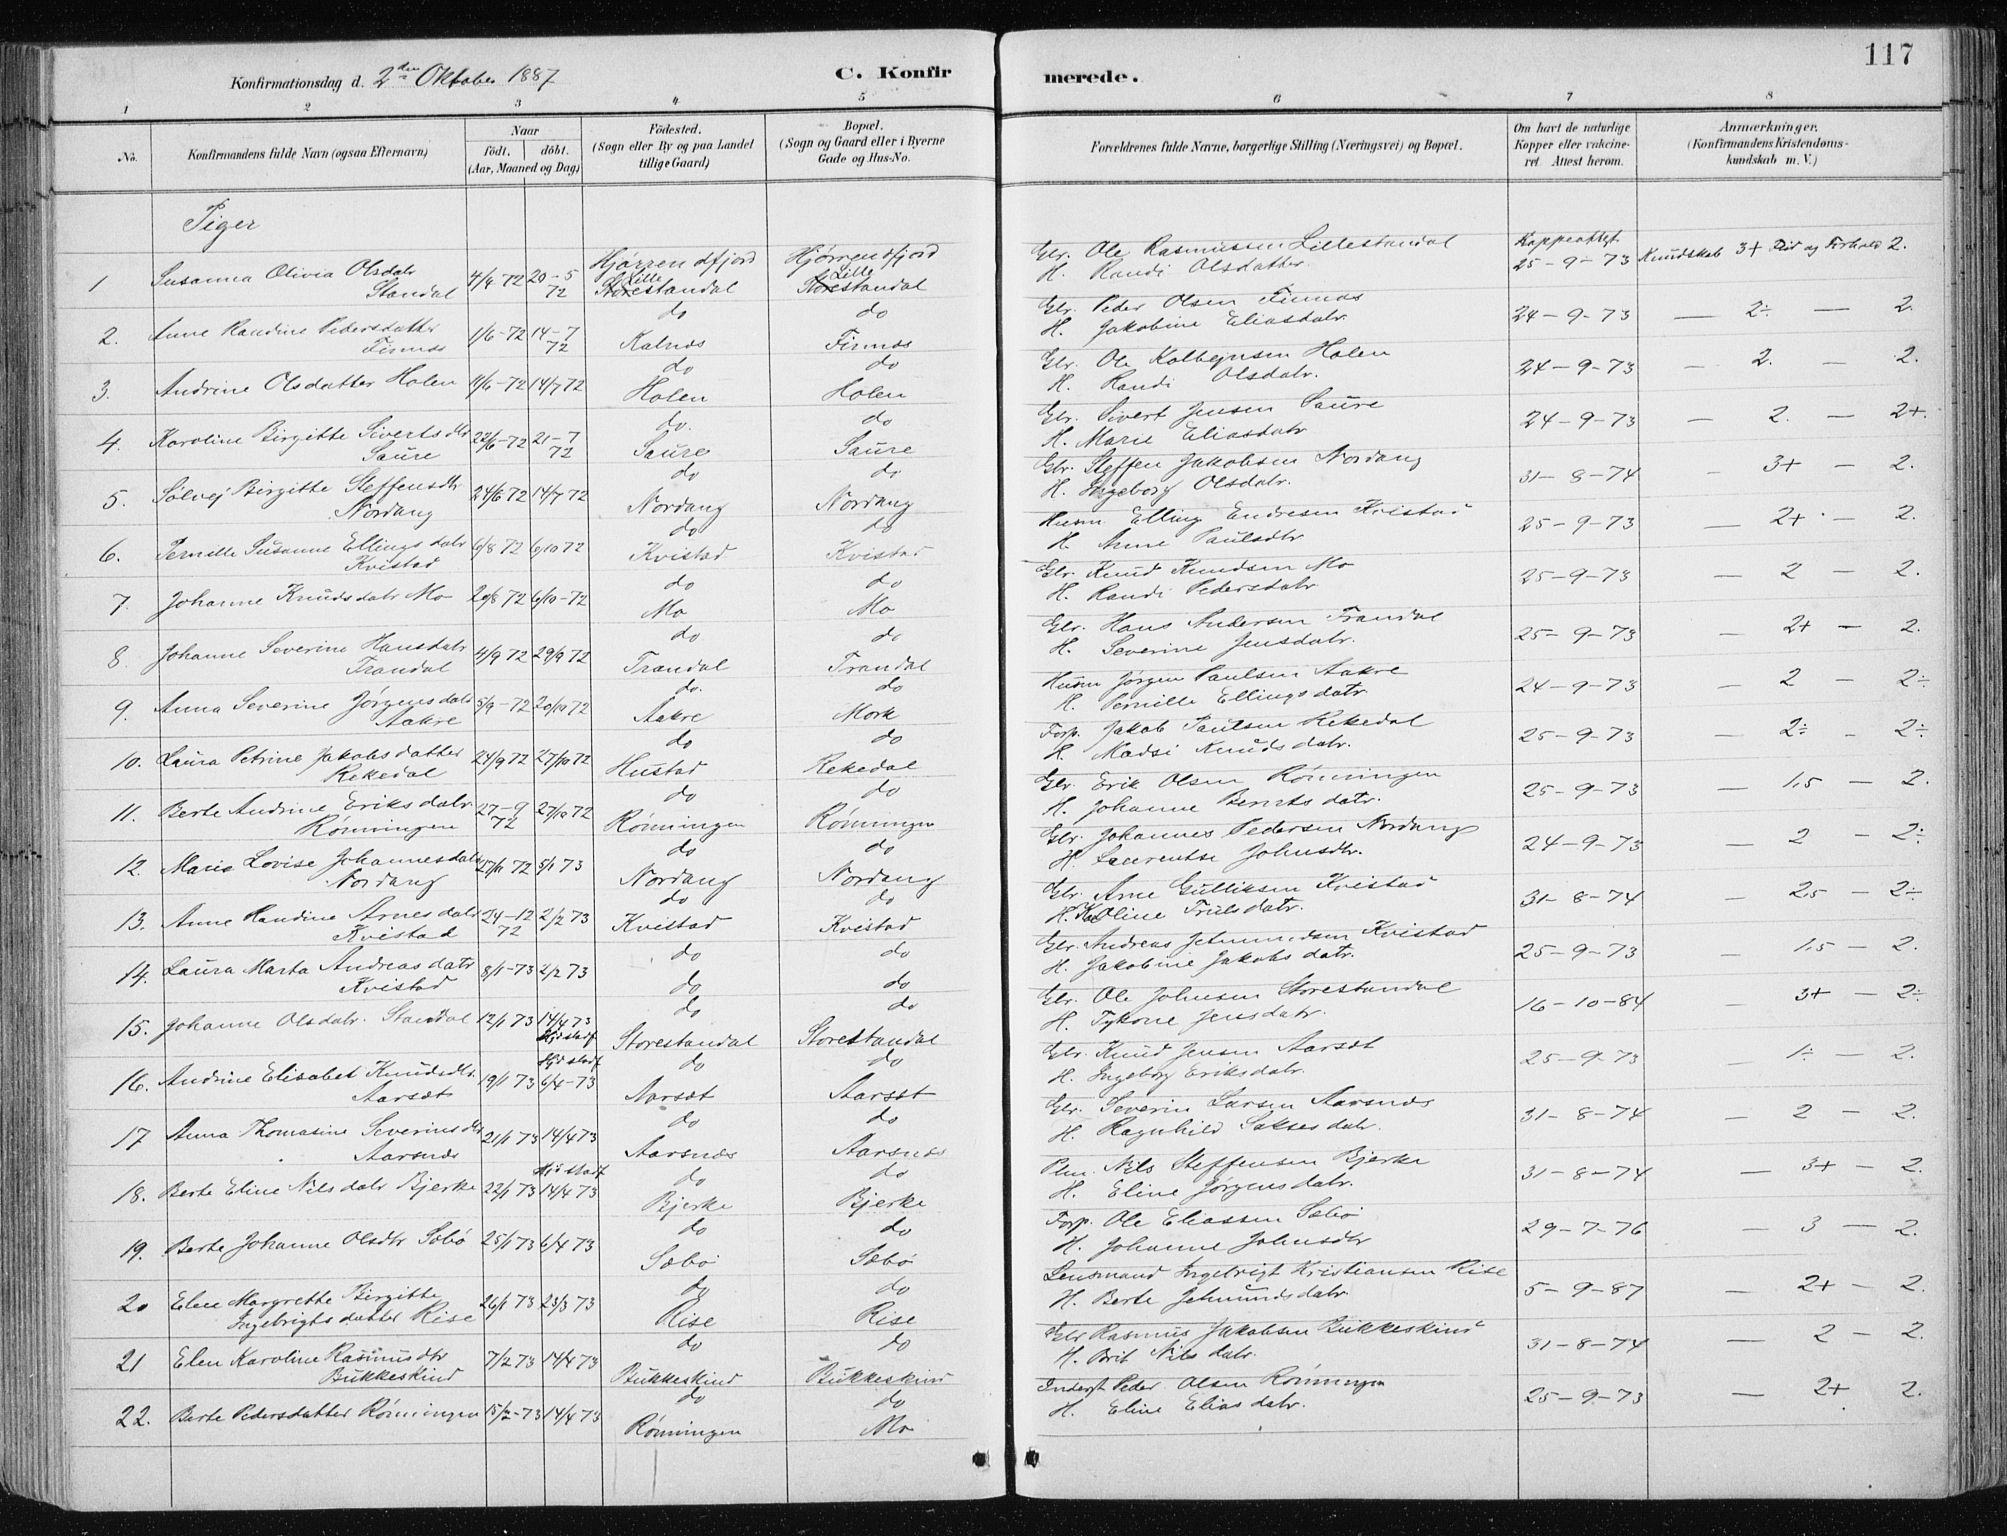 117
Konfirmationsdag d. 2den Oktober 1887 C. Konfirmerede.
1 2 3 4 5 6 7 8
No. Konfirmandens fulde Navn (ogsaa Efternavn) Naar født. døbt. (Aar, Maaned og Dag) Fødested. (Sogn eller By og paa Landet tillige Gaard) Bopæl. (Sogn og Gaard eller i Byerne Gade og Hus-No. Forældrenes fulde Navne, borgerlige Stilling (Næringsvei) og Bopæl. Om havt de naturlige Kopper eller vakcineret. Attest herom. Anmærkninger. (Konfirmandens Kristendomskundskab m. V.)
Piger
1 Susanna Olivia Olsdatr Standal 4/4 72 20-5 72 Hjørrendfjord Lille Storestandal Hjørrendfjord Lille Storestandal Gbr. Ole Rasmussen Lillestandal H. Randi Olsdatter Koppeattst 25-9-73 Kundskab 3+ Flid og Forhold 2.
2. Anne Randine Pedersdatter Finnæs 1/6-72 14-7 72 do Kalnæs do Finnæs Gbr. Peder Olsen Finnæs H. Jakobine Eliasdatr. 24-9-73 — 2÷ — 2.
3. Andrine Olsdatter Holen 11/6-72 14/7 72 do Holen do Holen Gbr. Ole Kolbejnsen Holen H. Randi Olsdatr. 24-9-73 — 2. — 2.
4. Karoline Birgitte Sivertsdtr Saure 22/6-72 21-7 72 do. Saure do Saure Gbr. Sivert Jensen Saure H. Marie Eliasdatr 24-9-73 — 2. — 2+.
5. Sølvej Birgitte Steffensdtr Nordang 24/6 72 14/7 72 do Nordang do Nordang Gbr. Steffen Jakobsen Nordang H. Ingeborg Olsdatr. 31-8-74 — 3+ — 2.
6. Pernille Susanne Ellingsdatr Kvistad 6/8 72 6/10 72 do Kvistad do Kvistad Husm. Elling Endresen Kvistad H. Anne Paulsdtr 25-9-73 — 2+ — 2.
7. Johanne Knudsdatr Mo 20/8 72 6/10-72 do Mo do Mo Gbr. Knud Knudsen Mo H. Randi Pedersdatr 25-9-73 — 2 — 2.
8. Johanne Severine Hansdatr Trandal 4/9 72 29/9 72 do Trandal do Trandal Gbr. Hans Andersen Trandal H. Severine Jensdatr. 25-9-73 — 2+ — 2.
9. Anna Severine Jørgensdatr Aakre 5/9-72 20/10 72 do. Aakre do Mork Husm Jørgen Paulsen Aakre H. Pernille Ellingsdatr. 24-9-73 — 2 — 2÷
10. Laura Petrine Jakobsdatter Rekedal 24/9 72 27/10 72 do Hustad do Rekedal Forp. Jakob Paulsen Rekedal H. Madsi Knudsdatr. 25-9-73 — 2÷ — 2÷
11. Berte Andrine Eriksdatr Rønningen 27-9 72 27/10 72 do Rønningen do Rønningen Gbr. Erik Olsen Rønningen H. Johanne Berntsdatr. 25-9-73 — 1,5 — 2.
12. Marie Lovise Johannesdatr Nordang 27/11 72 5/1 73 do Nordang do Nordang Gbr. Johannes Pedersen Nordang H. Laurentse Johnsdtr. 24-9-73 — 2 — 2÷
13. Anne Handine Arnesdatr Kvistad 24-12 72 2/2 73 do Kvistad do Kvistad Gbr. Arne Gulliksen Kvistad H. Karoline Trulsdatr. 31-8-74 — 2,5 — 2÷
14. Laura Marta Andreasdatr Kvistad 8/1-73 2/2 73 do do do do Gbr. Andreas Jetmundsen Kvistad H. Jakobine Jakobsdatr. 25-9-73 — 1,5 — 2.
15. Johanne Olsdatr. Standal 12/1 73 14/4 73 do Storestandal do Storestandal Gbr. Ole Johnsen Storestandal H. Jensdatr. 16-10-84 — 3+ — 2÷
16. Andrine Elisabet Knudsdtr. Aarsæt 19/1 73 6/4-73 do Aarsæt do Aarsæt Gbr. Knud Jensen Aarsæt H. Ingeborg Eriksdatr. 25-9-73 — 1÷ — 2.
17 Anna Thomasine Severinsdtr Aarsnæs 21/1 73 14/4 73 do Aarsnæs do Aarsnæs Gbr. Severin Larsen Aarsnæs H. Ragnhild Saksesdatr. 31-8-74 — 2 — 2.
18. Berte Eline Nilsdatr Bjerke 22/1 73 14/4 73 do Bjerke do Bjerke Nils Steffensen Bjerke H. Eline Jørgensdatr. 31-8-74 — 3+ — 2.
19. Berte Johanne Olsdtr Sæbø 25/1 73 6/4 73 do Sæbø do Sæbø Forp. Ole Eliassen Sæbø H. Johanne Johnsdtr 29-7-76 — 3 — 2.
20 Elen Margrethe Birgitte Ingebrigtsdatter Rise 26/1 73 23/3 73 do Rise do Rise Lensmand Ingebrigt Kristiansen Rise H. Berte Jetmundsdatr. 5-9-87 — 2+ — 2.
21 Elen Karoline Rasmusdtr Bukkeskind 7/2 73 14/4 73 do Bukkeskind do Bukkeskind Gbr Rasmus Jakobsen Bukkeskind H. Brit Nilsdatr. 31-8-74 — 2 — 2.
22. Berte Pedersdatter Rønningen 15/2-73 14/4 73 do Rønningen do Mo Inderst Peder Olsen Rønningen H. Eline Eliasdatr. 25-9-73 — 2+ 2.